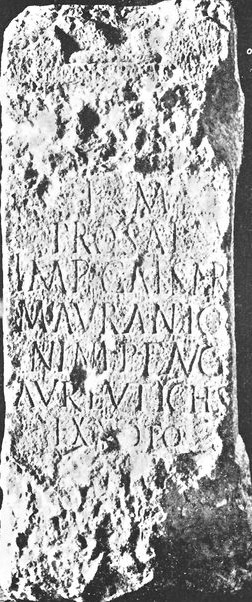 I M
PRO SAL
IMP CAESAR
M AVR ANTO
NINI P F AVG
AVR EVTICHS
EX VOTO